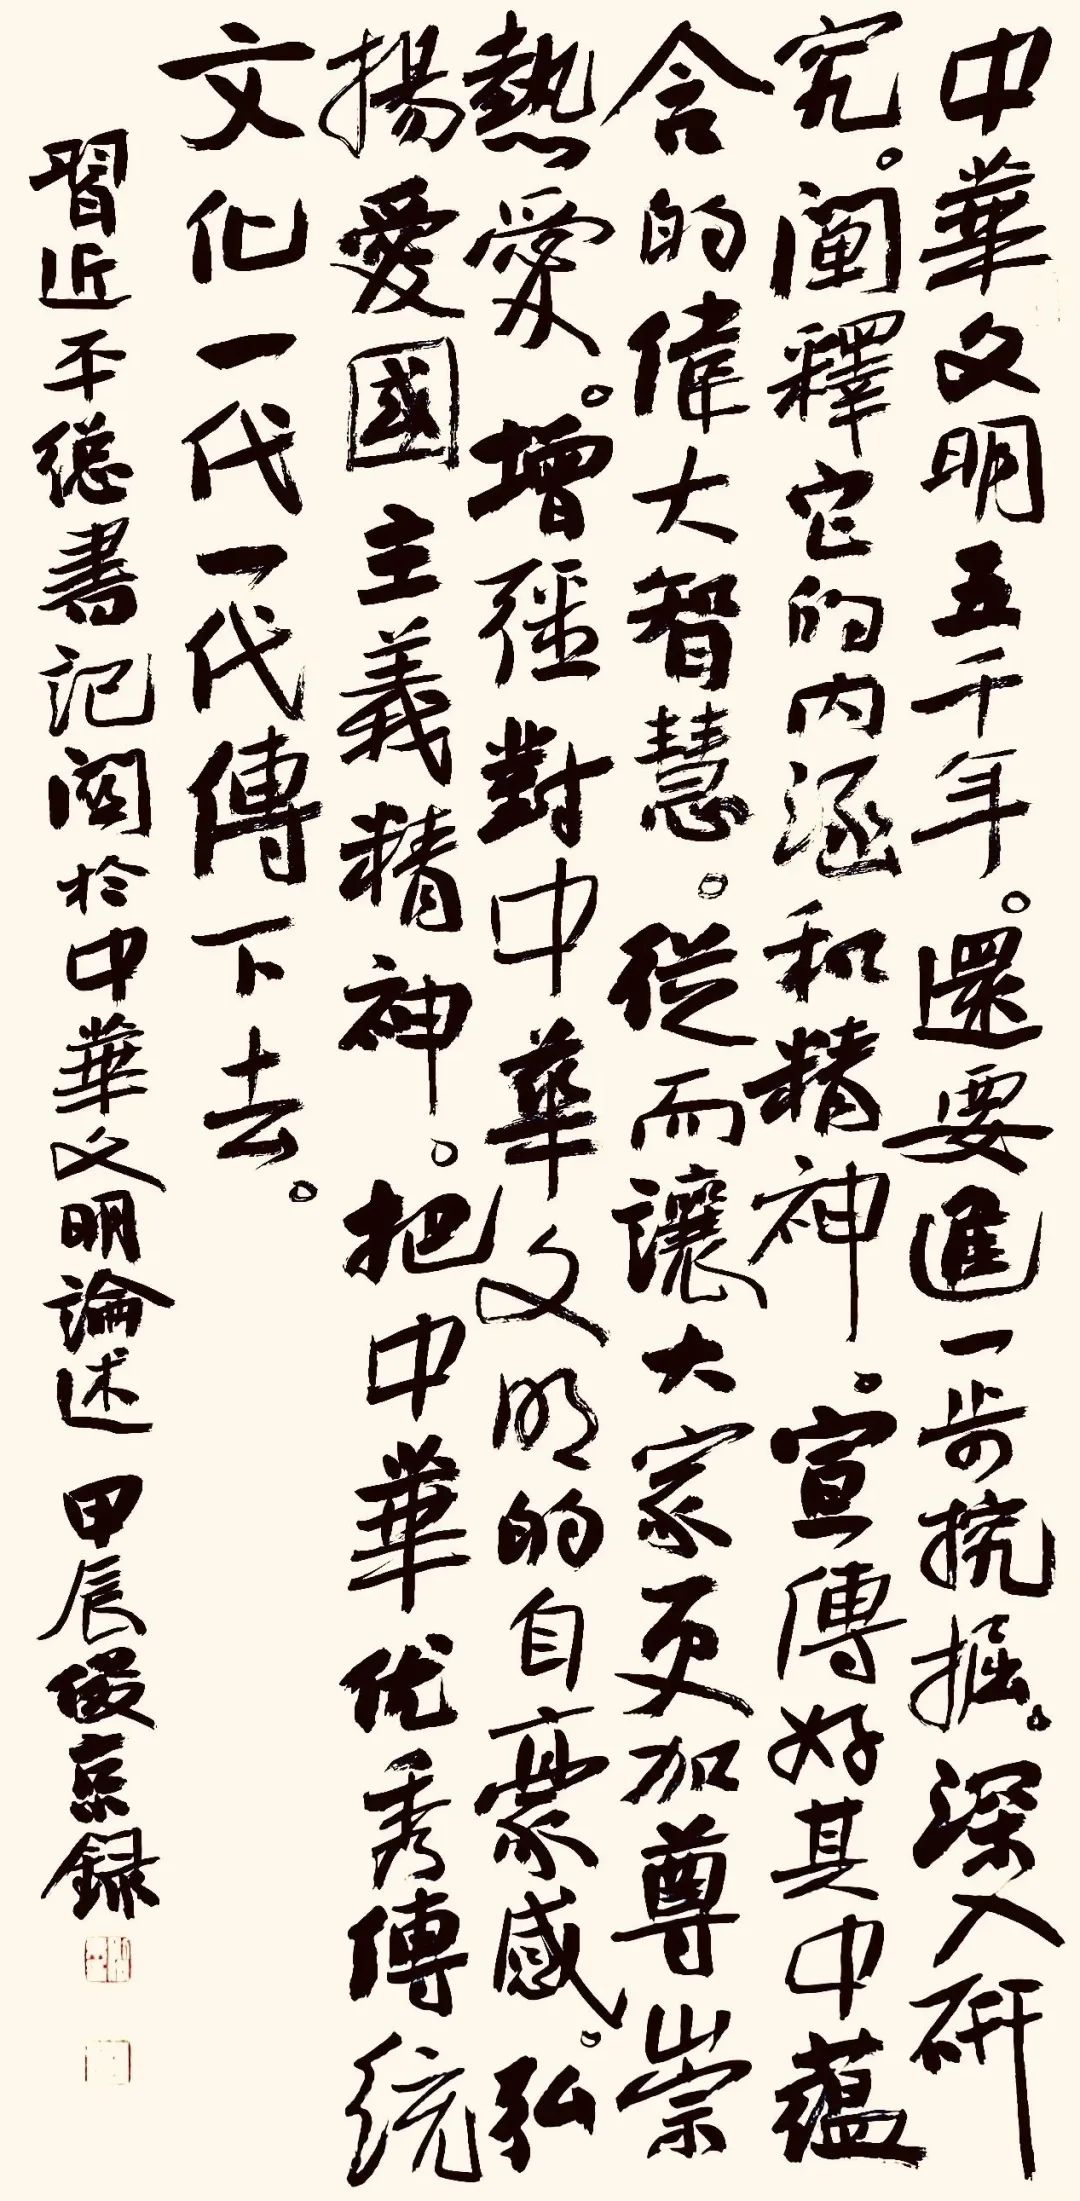 中華文明五千年。還要進一步挖掘。深入研
究。闡釋它的内涵和精神。宣傳好其中蘊
含的偉大智慧。從而讓大家更加尊崇
熱愛。增强對中華文明的自豪感。弘
揚愛國主義精神。把中華优秀傳統
文化一代一代傳下去。
習近平總書記關於中華文明論述 甲辰俊京録